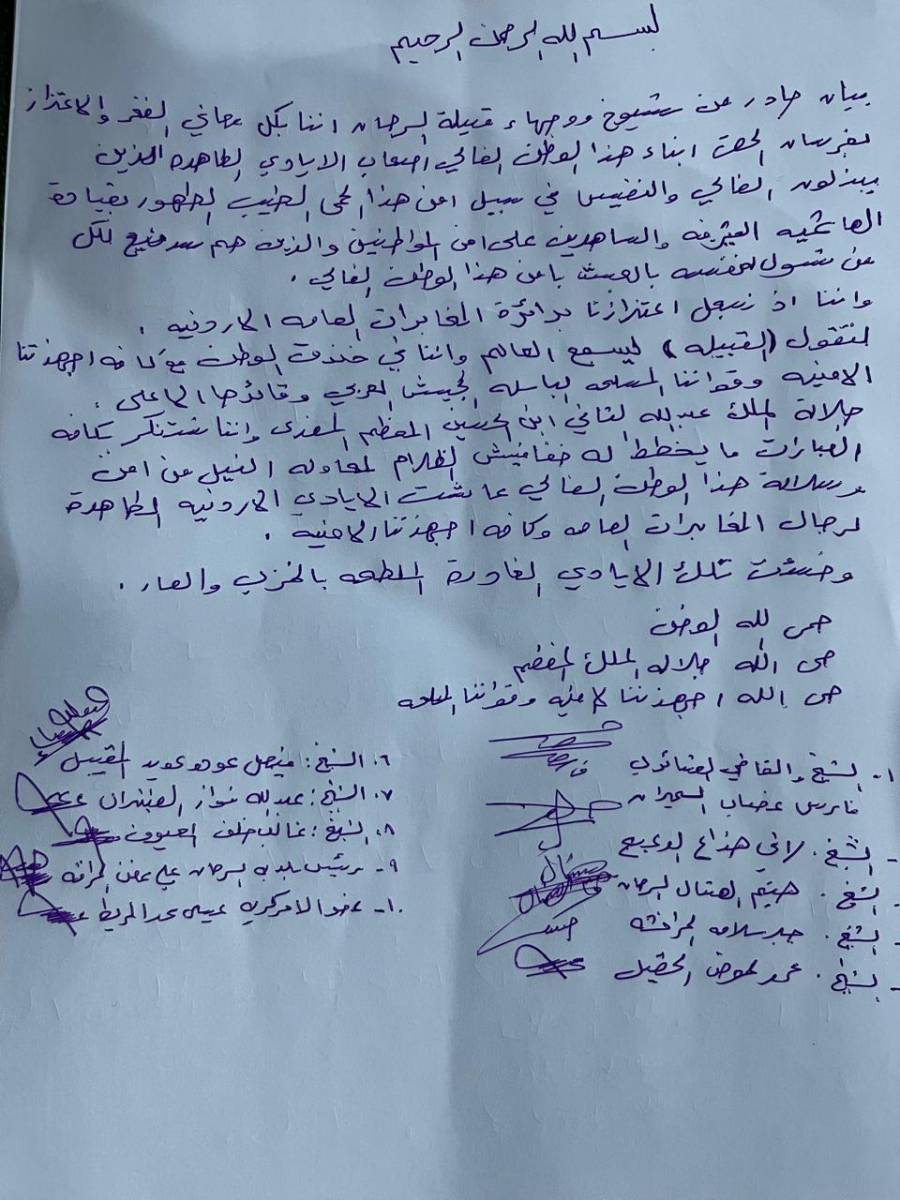 بسم الله الرحمن الرحيم
بيان صادر عن شيوخ ووجهاء قبيلة السرحان اننا بكل معاني الفخر والاعتزاز
بفرسان الحق ابناء هذا الوطن الغالي اصحاب الايادي الطاهره الذين
يبذلون الغالي والنفيس في سبيل امن هذا الحمى الطيب الطهور بقيادة
الهاشميه الشريفه والساهدين على امن المواطنين والذين هم سد منيع لكل
من تسول له نفسه بالعبث بامن هذا الوطن الغالي .
واننا اذ نسجل اعتزازنا بدائرة المخابرات العامه الاردنيه .
لتقول (القبيله) ليسمع العالم واننا في خندق الوطن مع كافه اجهزتنا
الامنيه وقواتنا المسلحه الباسله الجيش العربي وقائدها الاعلى :
جلالة الملك عبدالله الثاني ابن الحسين المعظم المفدى واننا نستنكر بكافه
العبارات ما يخطط له خفافيش الظلام لمحاوله النيل من امن
وسلامة هذا الوطن الغالي عاشت الايادي الاردنيه الطاهرة
لرجال المخابرات العامه وكافه اجهزتنا الامنيه .
وخسئت تلك الايادي الغادرة الملطخه بالخزي والعار .
حمى الله الوطن
حمى الله جلاله الملك المعظم
حمى الله اجهزتنا الامنيه وقواتنا المسلحه
١- الشيخ والقاضي العشائري
فارس عضاب السميران
- الشيخ . لافي هذاع
- الشيخ . هيثم السرحان
- الشيخ .
- الشيخ . محمد
٦. الشيخ : فيصل عوده عويد
٧. الشيخ : عبدالله نواز
٨. الشيخ : غالب خلف
٩- رئيس بلديه السرحان علي
١٠- عضو اللامركزيه عيسى